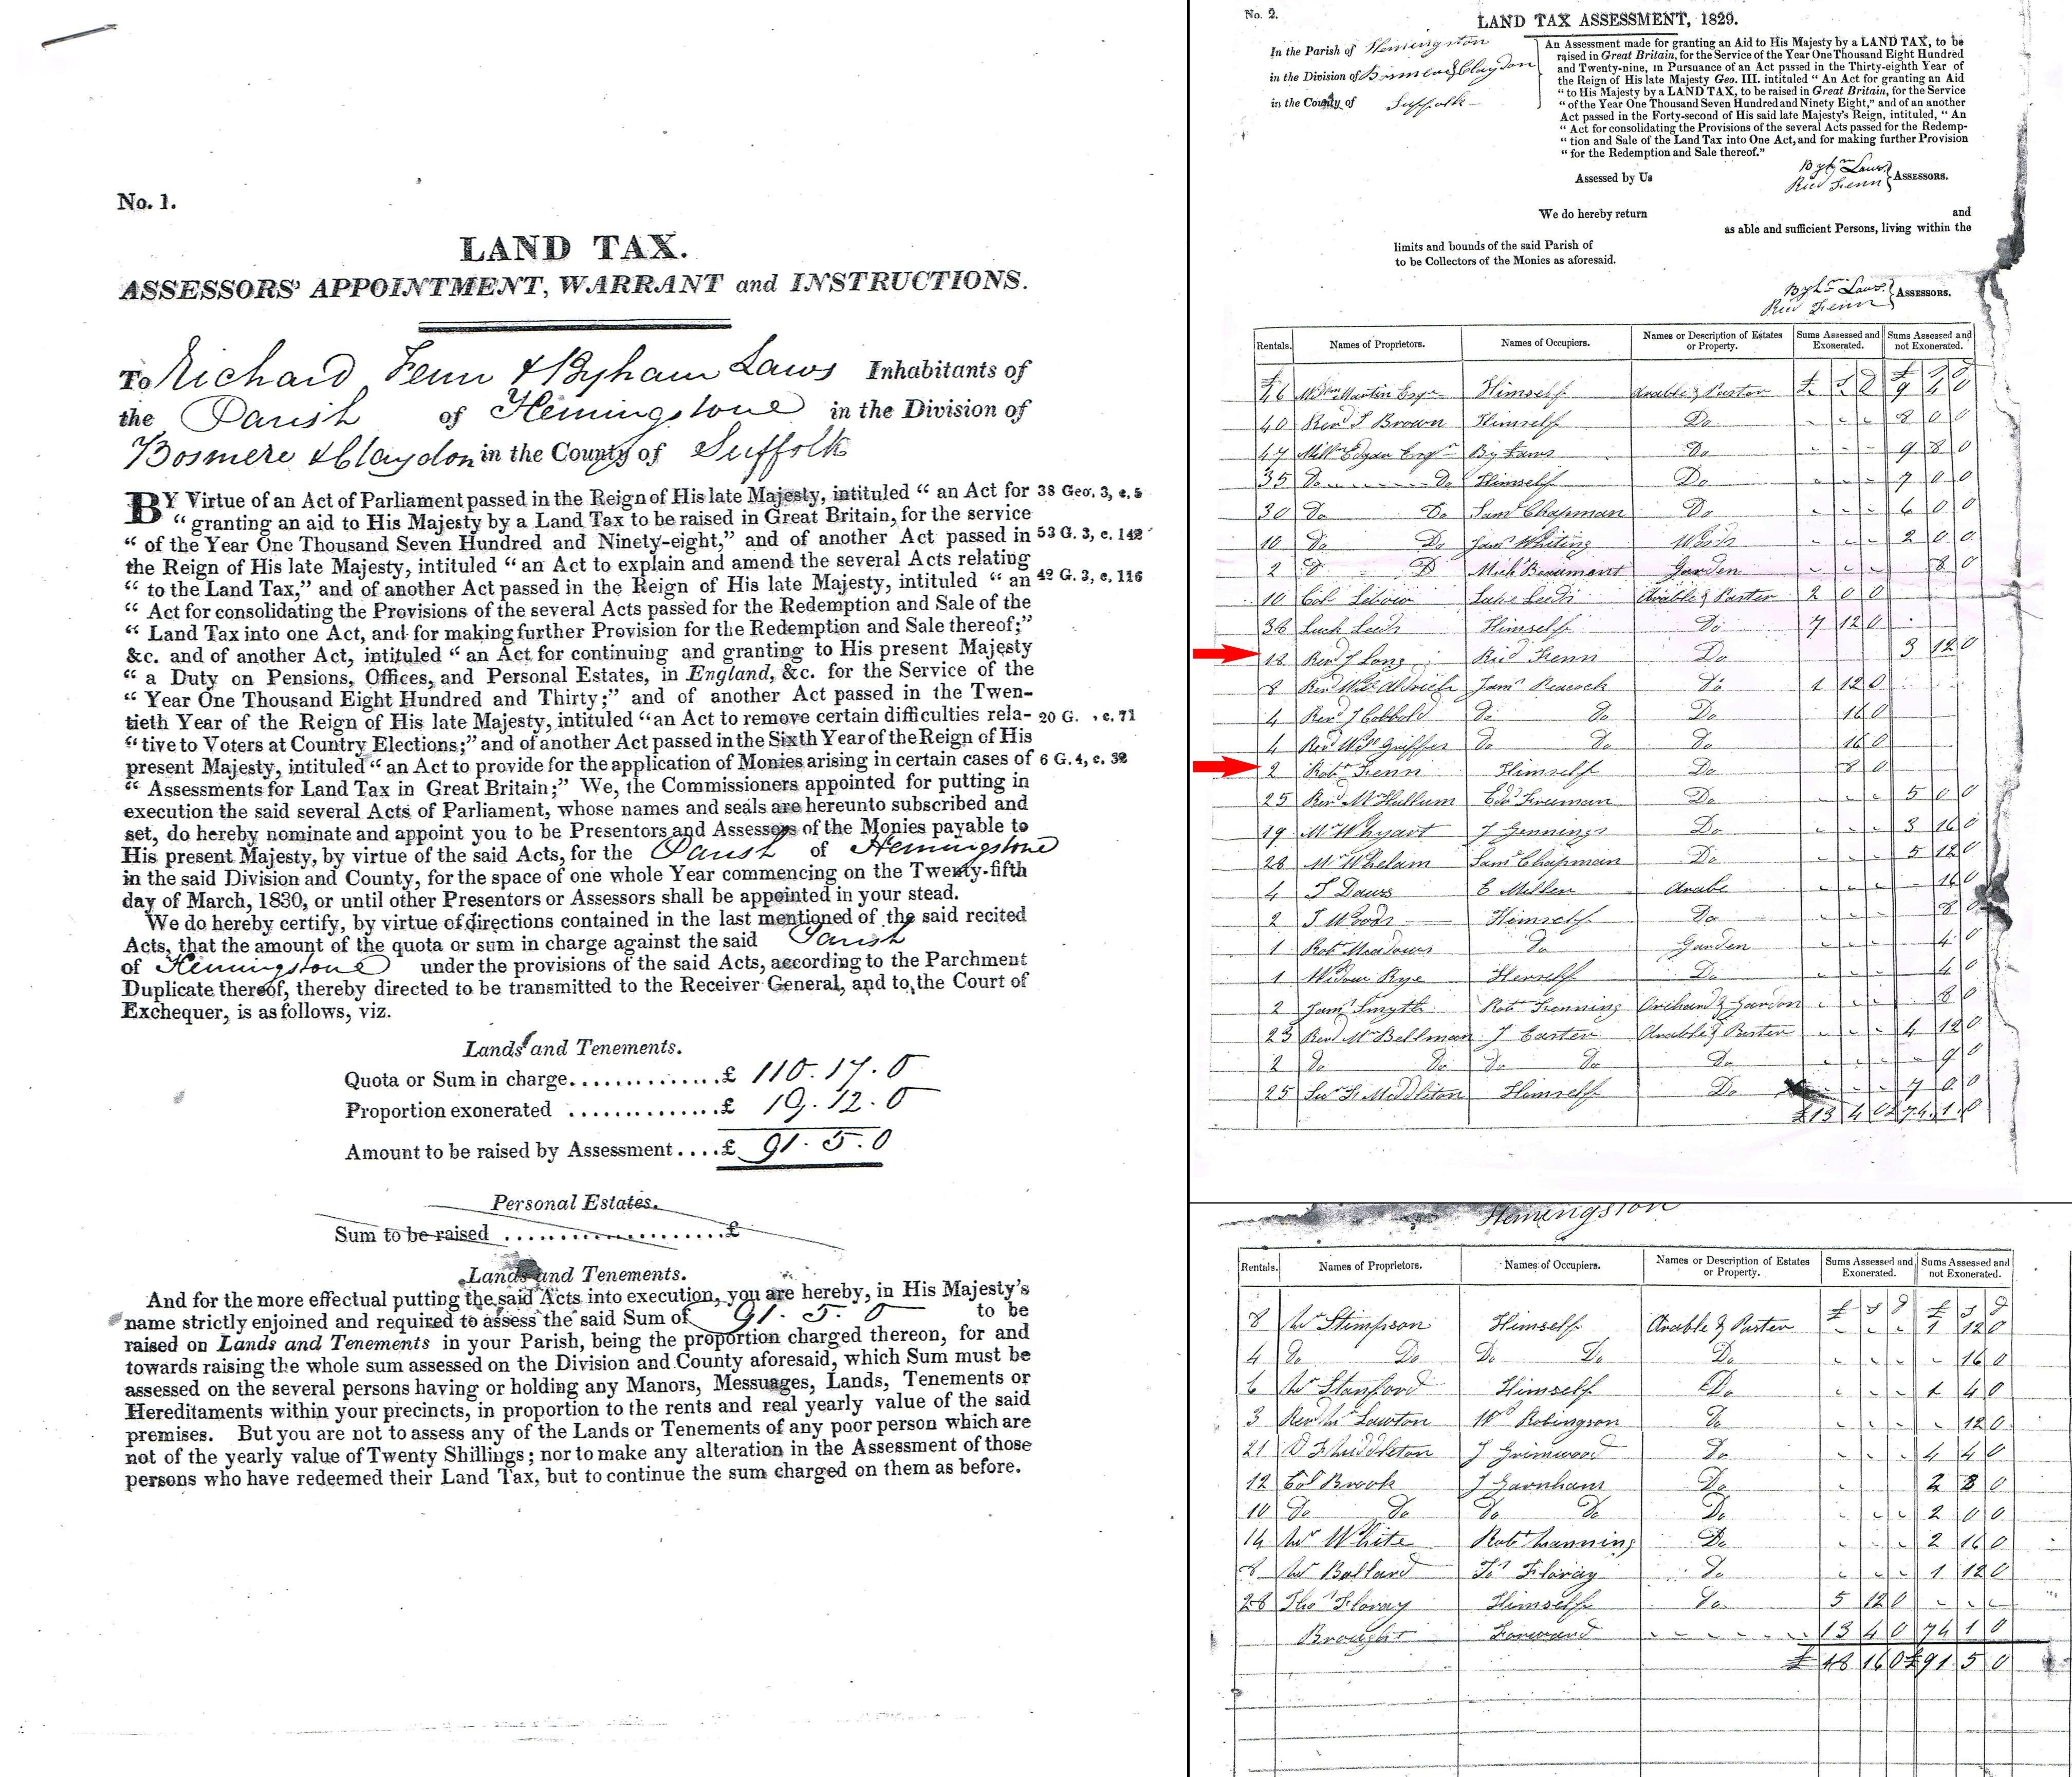 No. 1.
LAND TAX.
ASSESSORS' APPOINTMENT, WARRANT and INSTRUCTIONS.
To Richard Fenn & Byham Laws Inhabitants of
the Parish of Hemingstone in the Division of
Bosmere & Claydon in the County of Suffolk
BY Virtue of an Act of Parliament passed in the Reign of His late Majesty, intituled “ an Act for 38 Geo. 3, c. 5
“ granting an aid to His Majesty by a Land Tax to be raised in Great Britain, for the service
“ of the Year One Thousand Seven Hundred and Ninety-eight,” and of another Act passed in 53 G. 3, c. 142
the Reign of His late Majesty, intituled “ an Act to explain and amend the several Acts relating
“ to the Land Tax,” and of another Act passed in the Reign of His late Majesty, intituled “ an 42 G. 3, c. 116
“ Act for consolidating the Provisions of the several Acts passed for the Redemption and Sale of the
“ Land Tax into one Act, and for making further Provision for the Redemption and Sale thereof;”
&c. and of another Act, intituled “ an Act for continuing and granting to His present Majesty
“ a Duty on Pensions, Offices, and Personal Estates, in England, &c. for the Service of the
“ Year One Thousand Eight Hundred and Thirty;” and of another Act passed in the Twen-
tieth Year of the Reign of His late Majesty, intituled “an Act to remove certain difficulties rela- 20 G. , c. 71
“ tive to Voters at Country Elections;” and of another Act passed in the Sixth Year of the Reign of His
present Majesty, intituled “ an Act to provide for the application of Monies arising in certain cases of 6 G. 4, c. 32
“ Assessments for Land Tax in Great Britain;” We, the Commissioners appointed for putting in
execution the said several Acts of Parliament, whose names and seals are hereunto subscribed and
set, do hereby nominate and appoint you to be Presentors and Assessors of the Monies payable to
His present Majesty, by virtue of the said Acts, for the Parish of Hemingstone
in the said Division and County, for the space of one whole Year commencing on the Twenty-fifth
day of March, 1830, or until other Presentors or Assessors shall be appointed in your stead.
We do hereby certify, by virtue of directions contained in the last mentioned of the said recited
Acts, that the amount of the quota or sum in charge against the said Parish
of Hemingstone under the provisions of the said Acts, according to the Parchment
Duplicate thereof, thereby directed to be transmitted to the Receiver General, and to the Court of
Exchequer, is as follows, viz.
Lands and Tenements.
Quota or Sum in charge..............£ 110.17.0
Proportion exonerated ..............£ 19.12.0
Amount to be raised by Assessment....£ 91.5.0
Personal Estates.
Sum to be raised ......................£
Lands and Tenements.
And for the more effectual putting the said Acts into execution, you are hereby, in His Majesty's
name strictly enjoined and required to assess the said Sum of 91. 5. 0 to be
raised on Lands and Tenements in your Parish, being the proportion charged thereon, for and
towards raising the whole sum assessed on the Division and County aforesaid, which Sum must be
assessed on the several persons having or holding any Manors, Messuages, Lands, Tenements or
Hereditaments within your precincts, in proportion to the rents and real yearly value of the said
premises. But you are not to assess any of the Lands or Tenements of any poor person which are
not of the yearly value of Twenty Shillings; nor to make any alteration in the Assessment of those
persons who have redeemed their Land Tax, but to continue the sum charged on them as before.
No. 2.
LAND TAX ASSESSMENT, 1829.
In the Parish of Hemingston
in the Division of Bosmere & Claydon
in the County of Suffolk
An Assessment made for granting an Aid to His Majesty by a LAND TAX, to be
raised in Great Britain, for the Service of the Year One Thousand Eight Hundred
and Twenty-nine, in Pursuance of an Act passed in the Thirty-eighth Year of
the Reign of His late Majesty Geo. III. intituled “ An Act for granting an Aid
“ to His Majesty by a LAND TAX, to be raised in Great Britain, for the Service
“ of the Year One Thousand Seven Hundred and Ninety Eight,” and of an another
Act passed in the Forty-second of His said late Majesty's Reign, intituled, “ An
“ Act for consolidating the Provisions of the several Acts passed for the Redemp-
“ tion and Sale of the Land Tax into One Act, and for making further Provision
“ for the Redemption and Sale thereof.”
Assessed by Us Byhm Laws Ricd Fenn ASSESSORS.
We do hereby return and
as able and sufficient Persons, living within the
limits and bounds of the said Parish of
to be Collectors of the Monies as aforesaid.
Byhm Laws Ricd Fenn ASSESSORS.
Rentals. Names of Proprietors. Names of Occupiers. Names or Description of Estates or Property. Sums Assessed and Exonerated. Sums Assessed and not Exonerated.
£ £ s d £ s d
46 Wm Martin Esqr Himself Arable & Paster 9 4 0
40 Revd Brown Himself Do 8 0 0
47 Edgar Esqr By Laws Do 9 8 0
35 Do Do Himself Do 7 0 0
30 Do Do Saml Chapman Do 6 0 0
10 Do Do Jams Whiting Woods 2 0 0
2 D D Mich Beaumont Garden 8 0
10 Col Luke Leeds Arable & Paster 2 0 0
38 Luck Leeds Himself Do 7 12 0
18 Revd J Long Ricd Fenn Do 3 12 0
8 Revd Aldrich Jams Peacock Do 1 12 0
4 Revd J Cobbold Do Do Do 16 0
4 Revd Wm Griffes Do Do Do 16 0
2 Robt Fenn Himself Do 8 0
25 Revd Mr Hallum Edd Freeman Do 5 0 0
19 Mr Whyart J Jennings Do 3 16 0
28 Mr Whelam Saml Chapman Do 5 12 0
4 J Daws E Miller Arabe 16 0
2 J Woods Himself Do 8 0
1 Robt Meadows Do Garden 4 0
1 Widow Rye Herself Do 4 0
2 Jams Smyth Robt Fenning Orichard & Garden 8 0
23 Revd Mr Bellman J Easter Arable & Paster 4 12 0
2 Do Do Do Do Do 9 0
25 Sir Middleton Himself Do 7 0 0
£13 4 0 £74.1.0
Hemingston
Rentals. Names of Proprietors. Names of Occupiers. Names or Description of Estates or Property. Sums Assessed and Exonerated. Sums Assessed and not Exonerated.
£ s d £ s d
8 Mr Stimpson Himself Arable & Paster 1 12 0
4 Do Do Do Do Do 16 0
6 Mr Stanford Himself Do 1 4 0
3 Revd Mr Lawton Wd Robingson Do 12 0
21 Middleton J Grimwood Do 4 4 0
12 Col Brook J Garnham Do 2 8 0
10 Do Do Do Do Do 2 0 0
14 Mr White Robt Lanning Do 2 16 0
8 Mr Ballard Floray Do 1 12 0
28 Thos Floray Himself Do 5 12 0
Brought Forward 13 4 0 74 1 0
£ 18 16 0 £91 5 0